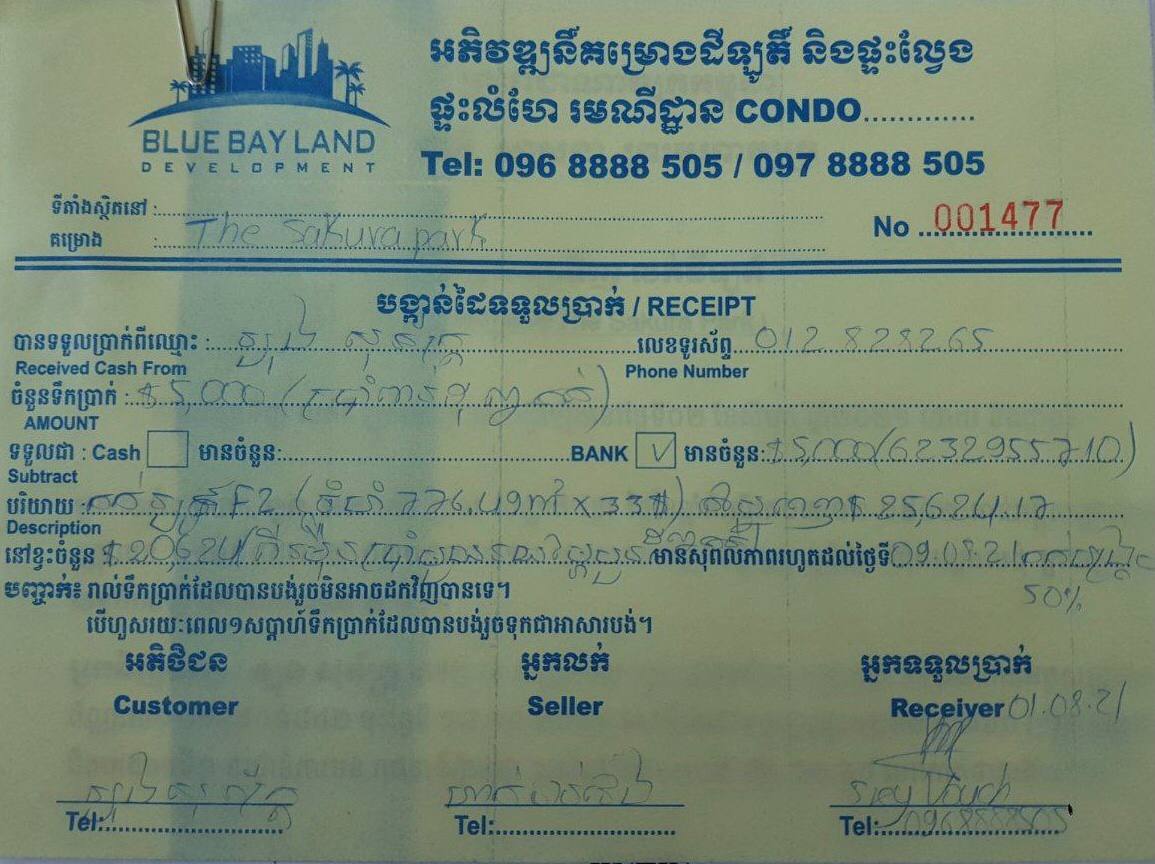 BLUE BAY LAND
DEVELOPMENT
អភិវឌ្ឍន៍គម្រោងដីឡូតិ៍ និងផ្ទះល្វែង
ផ្ទះលំហែ រមណីដ្ឋាន CONDO.............
Tel: 096 8888 505 / 097 8888 505
ទីតាំងស្ថិតនៅ :
គម្រោង : The Sakura park
No 001477
បង្កាន់ដៃទទួលប្រាក់ / RECEIPT
បានទទួលប្រាក់ពីឈ្មោះ : លេខទូរស័ព្ទ 012 828265
Received Cash From Phone Number
ចំនួនទឹកប្រាក់ : $5,000 (ប្រាំពាន់ដុល្លារគត់)
AMOUNT
ទទួលជា : Cash មានចំនួន: BANK V មានចំនួន: $5,000 (6232955710)
Subtract
បរិយាយ : F2 (776.49m² x 33$) $25,624.17
Description
នៅខ្វះចំនួន $20,624 មានសុពលភាពរហូតដល់ថ្ងៃទី 09.08.21
50%
បញ្ជាក់៖ រាល់ទឹកប្រាក់ដែលបានបង់រួចមិនអាចដកវិញបានទេ។
បើហួសរយៈពេល១សប្តាហ៍ទឹកប្រាក់ដែលបានបង់រួចទុកជាអាសារបង់។
អតិថិជន អ្នកលក់ អ្នកទទួលប្រាក់
Customer Seller Receiver 01.08.21
Srey Vouch
Tel: Tel: Tel: 0968888505